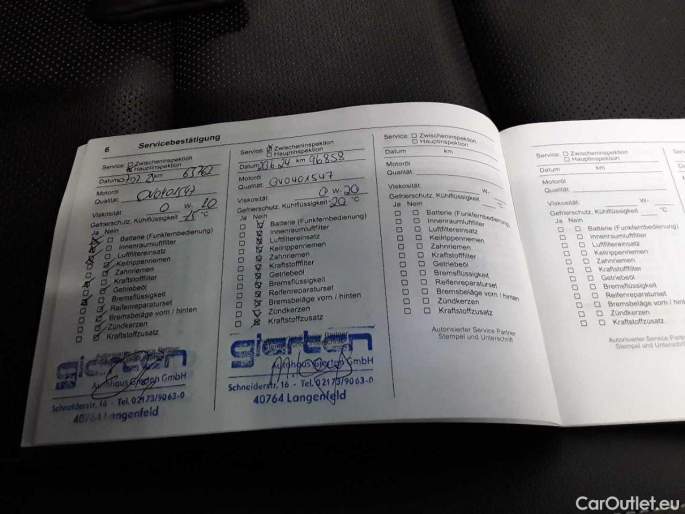 6 Servicebestätigung
Service: Zwischeninspektion
Hauptinspektion
Datum km 63762
Motoröl
Qualität: OV0401547
Viskosität 0 W- 20
Gefrierschutz, Kühlflüssigkeit °C
Ja Nein
Batterie (Funkfernbedienung)
Innenraumluftfilter
Luftfiltereinsatz
Keilrippenriemen
Zahnriemen
Kraftstofffilter
Getriebeöl
Bremsflüssigkeit
Reifenreparaturset
Bremsbeläge vorn / hinten
Zündkerzen
Kraftstoffzusatz
gierten
Autohaus Gierten GmbH
Schneiderstr. 16 - Tel. 02173/9063-0
40764 Langenfeld
Service: Zwischeninspektion
Hauptinspektion
Datum km 96858
Motoröl
Qualität OV0401547
Viskosität 0 W- 20
Gefrierschutz, Kühlflüssigkeit -20 °C
Ja Nein
Batterie (Funkfernbedienung)
Innenraumluftfilter
Luftfiltereinsatz
Keilrippenriemen
Zahnriemen
Kraftstofffilter
Getriebeöl
Bremsflüssigkeit
Reifenreparaturset
Bremsbeläge vorn / hinten
Zündkerzen
Kraftstoffzusatz
gierten
Autohaus Gierten GmbH
Schneiderstr. 16 - Tel. 02173/9063-0
40764 Langenfeld
Service: Zwischeninspektion
Hauptinspektion
Datum km
Motoröl
Qualität
Viskosität: W-
Gefrierschutz, Kühlflüssigkeit °C
Ja Nein
Batterie (Funkfernbedienung)
Innenraumluftfilter
Luftfiltereinsatz
Keilrippenriemen
Zahnriemen
Kraftstofffilter
Getriebeöl
Bremsflüssigkeit
Reifenreparaturset
Bremsbeläge vorn / hinten
Zündkerzen
Kraftstoffzusatz
Autorisierter Service Partner
Stempel und Unterschrift
Service: Zwischeninspektion
Hauptinspektion
Datum km
Motoröl
Qualität:
Viskosität: W-
Gefrierschutz, Kühlflüssigkeit °C
Ja Nein
Batterie (Funkfernbedienung)
Innenraumluftfilter
Luftfiltereinsatz
Keilrippenriemen
Zahnriemen
Kraftstofffilter
Getriebeöl
Bremsflüssigkeit
Reifenreparaturset
Bremsbeläge vorn / hinten
Zündkerzen
Kraftstoffzusatz
Autorisierter Service Partner
Stempel und Unterschrift
CarOutlet.eu